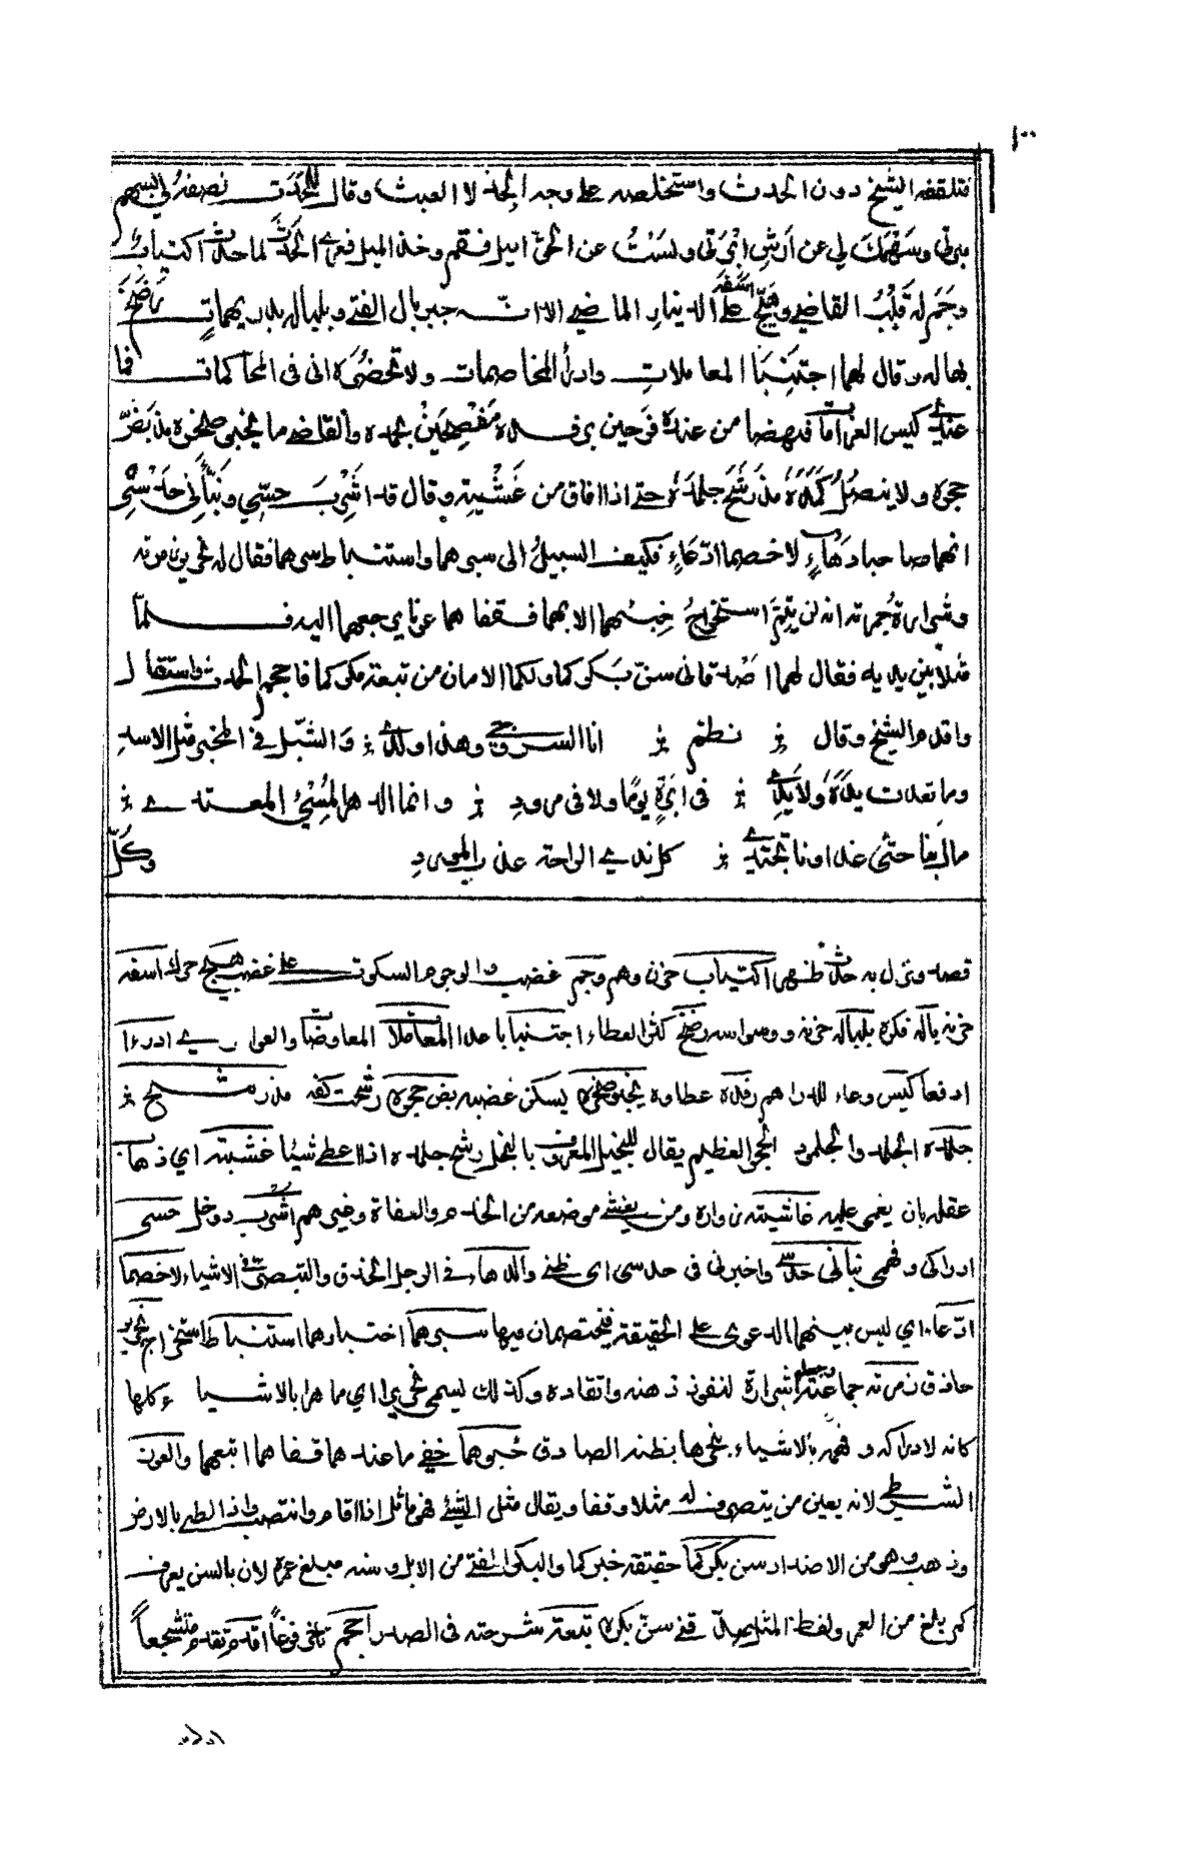 ١٠٠
فتلقفه الشيخ دون الحدث واستخلصه على وجه الجد لا العبث وقال للحدث نصفه لي بسهم
مبرتي وسهمك لي عن أرش إبرتي ولست عن الحق اميل فقم وخذ الميل فعرى الحدث لما حدث اكتياب
وجم له قلب القاضي وهيج اسفه على الدينار الماضي الا انه جبر بال الفتى وبلباله بدريهمات رضخ
بها له وقال لهما اجتنبا المعاملات وادرأ المخاصمات ولا تحضراني في المحاكمات فما
عندي كيس الغرامات فنهضا من عنده فرحين برفده مفصحين بحمده والقاضي ما يخبي ضجره مذ بض
حجره ولا ينصل كمده مذ رشح جلمده حتى اذا افاق من غشيته وقال قد اشرب حسي ونبأني حدسي
انهما صاحبا دهاء لا خصما ادعاء فكيف السبيل الى سبرهما واستنباط سرهما فقال له نحرير زمرته
وشرارة جمرته انه لن يتم استخراج خبئهما الا بهما فقفاهما عونا يرجعهما اليه فلما
مثلا بين يديه فقال لهما اصدقاني سن بكركما ولكما الامان من تبعة مكركما فاحجم الحدث واستقال
واقدم الشيخ وقال نظم انا السروجي وهذا ولدي والشبل في المخبر مثل الاسد
وما تعدت يده ولا يدي في ابرة يوما ولا في مرود وانما الدهر المسيء المعتدي
مال بنا حتى غدونا نجتدي كل ندي الراحة عذب المورد وكل
قصد ونزل به حدث ظهر اكتياب حزن وهم وجم غضب والوجوم السكوت على غضب هيج حرك اسفه
حزنه باله فكره بلباله حزنه ووسواسه رضخ كثر العطاء اجتنبا باعدا المعاملات المعاوضات والعواري ادرءا
ادفعا كيس وعاء للدراهم رفده عطاوه يخبو ضجره يسكن غضبه بض حجره رشحت كفه مذ رشح
جلمده الجلمد والجلمود الحجر العظيم يقال للبخيل المعروف بالبخل رشح جلمده اذا اعطى شيئا غشيته اي ذهاب
عقله بان يغمى عليه غاشيته زواره ومن يغشى موضعه من الخدم والعفاة وغيرهم اشرب دوخل حسي
ادراكي وفهمي نبأني حدسي واخبرني في حدسي اي ظني والدهاء في الرجل الحذق والتبصر في الاشياء لا خصما
ادعاء اي ليس بينهما الدعوى على الحقيقة فيختصمان فيها سبرهما اختبارهما استنباط استخراج نحرير
حاذق زمرته جماعته وجملته شرارة لنفوذ ذهنه واتقاده وكذلك يسمى نحريرا اي ماهرا بالاشياء كلها
كانه لادراكه وفهمه بالاشياء ينحرها بظنه الصادق خبوهما خفي ما عندهما قفاهما اتبعهما والعون
الشرطي لانه يعين من يتصرف له مثلا وقفا ويقال مثل الشيء فهو ماثل اذا اقام وانتصب واذا لطي بالارض
وذهب وهو من الاضداد سن بكركما حقيقة خبركما والبكر الفتي من الابل وسنه مبلغ عمره لان بالسن يعرف
كم بلغ من العمر ولفظ المثل صدقني سن بكره تبعة شرحته في الصدر احجم تاخر فزعا اقدم تقدم متشجعا